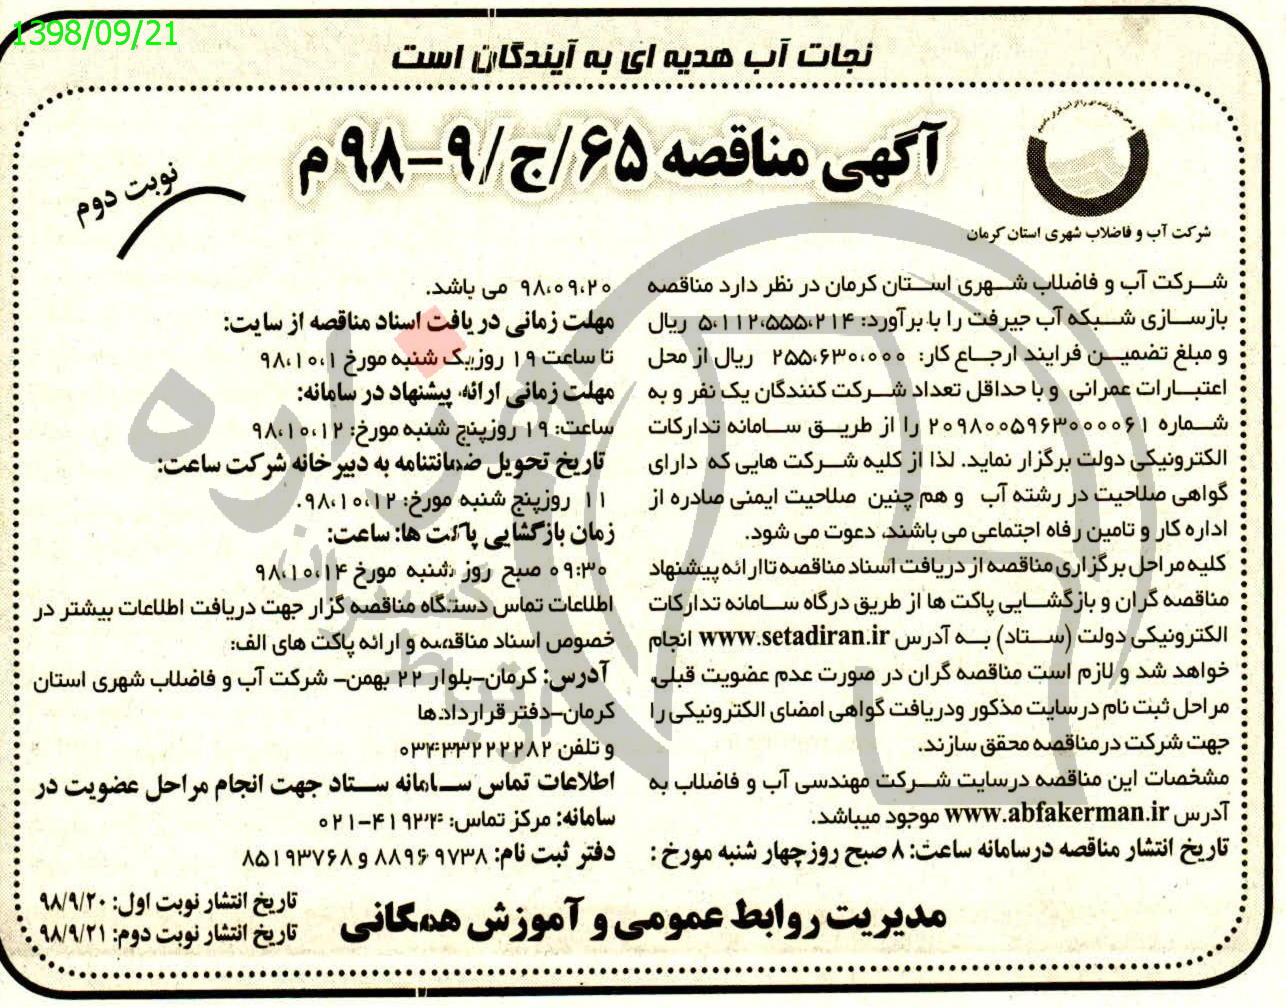 1398/09/21
نجات آب هدیه ای به آیندگان است
آگهی مناقصه ۶۵/ج/۹-۹۸ م
نوبت دوم
شرکت آب و فاضلاب شهری استان کرمان
شرکت آب و فاضلاب شهری استان کرمان در نظر دارد مناقصه
بازسازی شبکه آب جیرفت را با برآورد: ۵،۱۱۲،۵۵۵،۲۱۴ ریال
و مبلغ تضمین فرایند ارجاع کار: ۲۵۵،۶۳۰،۰۰۰ ریال از محل
اعتبارات عمرانی و با حداقل تعداد شرکت کنندگان یک نفر و به
شماره ۲۰۹۸۰۰۵۹۶۳۰۰۰۰۶۱ را از طریق سامانه تدارکات
الکترونیکی دولت برگزار نماید. لذا از کلیه شرکت هایی که دارای
گواهی صلاحیت در رشته آب و هم چنین صلاحیت ایمنی صادره از
اداره کار و تامین رفاه اجتماعی می باشند، دعوت می شود.
کلیه مراحل برگزاری مناقصه از دریافت اسناد مناقصه تا ارائه پیشنهاد
مناقصه گران و بازگشایی پاکت ها از طریق درگاه سامانه تدارکات
الکترونیکی دولت (ستاد) به آدرس www.setadiran.ir انجام
خواهد شد و لازم است مناقصه گران در صورت عدم عضویت قبلی،
مراحل ثبت نام درسایت مذکور ودریافت گواهی امضای الکترونیکی را
جهت شرکت درمناقصه محقق سازند.
مشخصات این مناقصه درسایت شرکت مهندسی آب و فاضلاب به
آدرس www.abfakerman.ir موجود میباشد.
تاریخ انتشار مناقصه درسامانه ساعت: ۸ صبح روزچهار شنبه مورخ :
۹۸،۰۹،۲۰ می باشد.
مهلت زمانی دریافت اسناد مناقصه از سایت:
تا ساعت ۱۹ روزیک شنبه مورخ ۹۸،۱۰،۱
مهلت زمانی ارائه پیشنهاد در سامانه:
ساعت: ۱۹ روزپنج شنبه مورخ: ۹۸،۱۰،۱۲
تاریخ تحویل ضمانتنامه به دبیرخانه شرکت ساعت:
۱۱ روزپنج شنبه مورخ: ۹۸،۱۰،۱۲.
زمان بازگشایی پاکت ها: ساعت:
۰۹:۳۰ صبح روز شنبه مورخ ۹۸،۱۰،۱۴
اطلاعات تماس دستگاه مناقصه گزار جهت دریافت اطلاعات بیشتر در
خصوص اسناد مناقصه و ارائه پاکت های الف:
آدرس: کرمان-بلوار ۲۲ بهمن- شرکت آب و فاضلاب شهری استان
کرمان-دفتر قراردادها
و تلفن ۰۳۴۳۳۲۲۲۲۸۲
اطلاعات تماس سامانه ستاد جهت انجام مراحل عضویت در
سامانه: مرکز تماس: ۴۱۹۳۴-۰۲۱
دفتر ثبت نام: ۸۸۹۶۹۷۳۸ و ۸۵۱۹۳۷۶۸
مدیریت روابط عمومی و آموزش همگانی
تاریخ انتشار نوبت اول: ۹۸/۹/۲۰
تاریخ انتشار نوبت دوم: ۹۸/۹/۲۱
هزاره